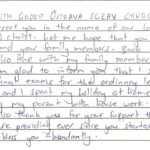 UTH GROUP
reet you in the name of our lo
christ. Let me hope that you
nd your family members. Back
also fine with my family member
m glad to inform you that I
onal exams for the ordinary le
and I spent my holiday at home
g my parent with house work.
lso thank you for your support th
are providing ever since you started
bless you abundantly